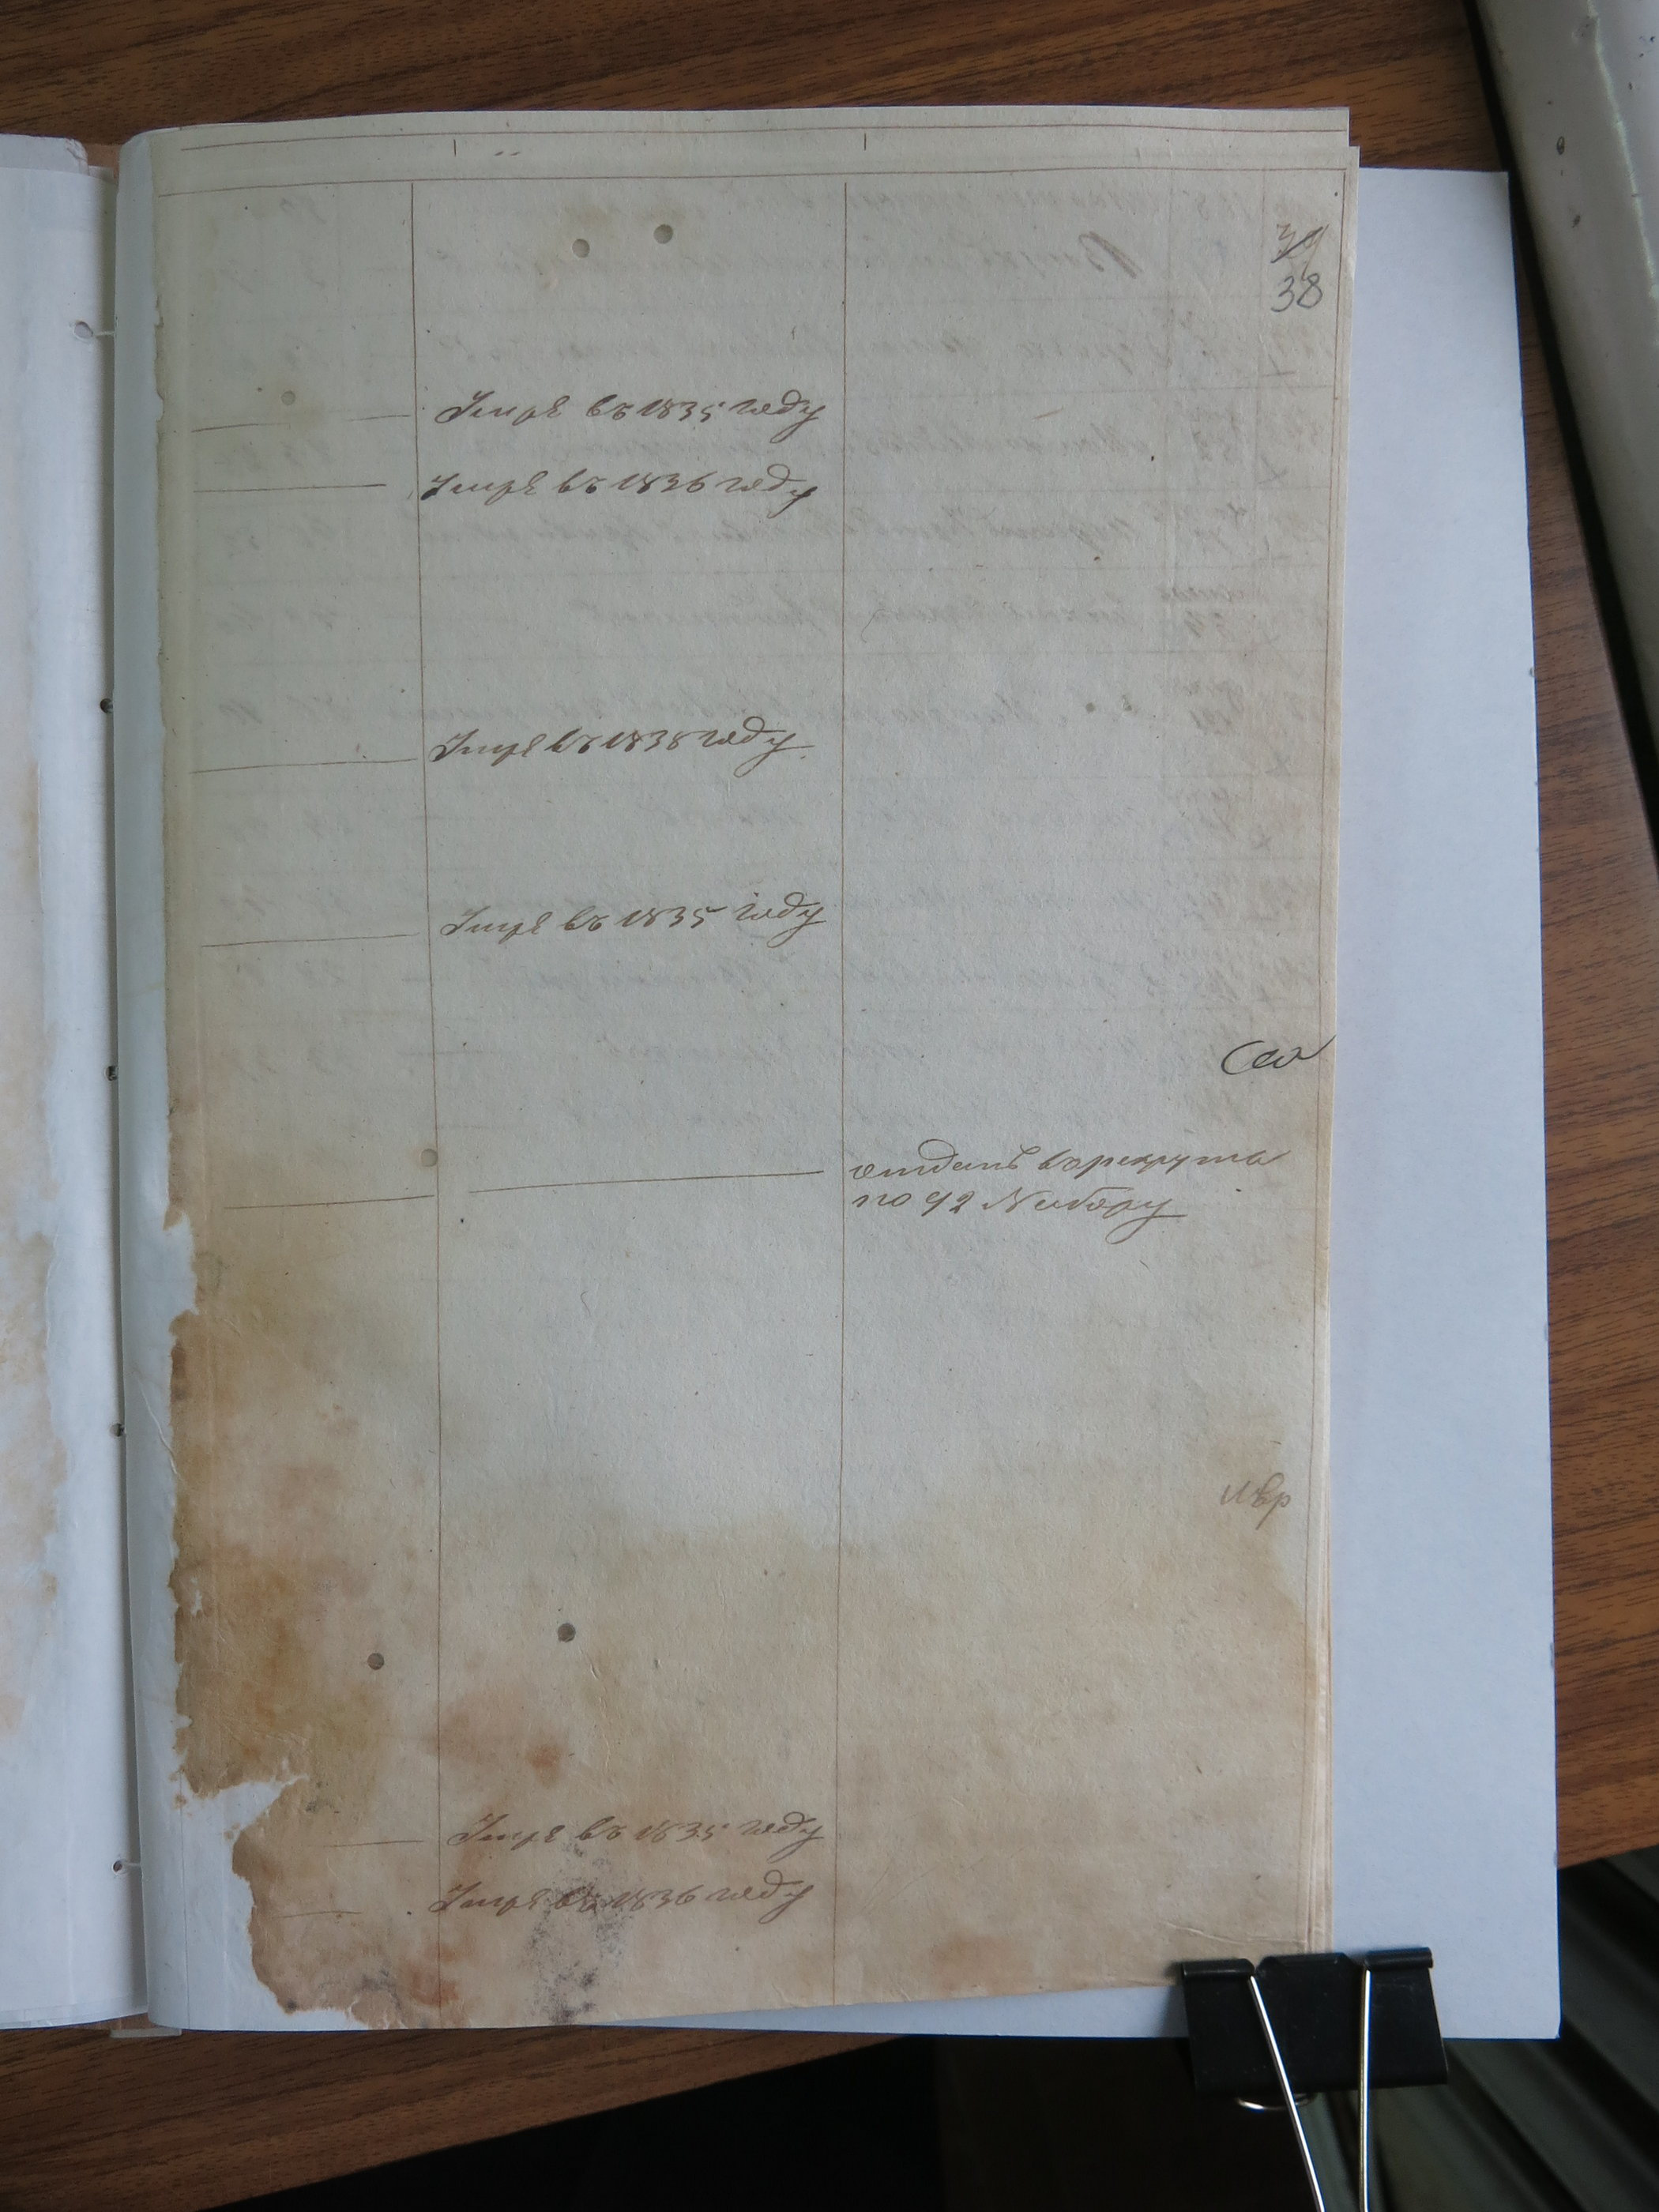 39
38
Умре въ 1835 году
Умре въ 1836 году
Умре въ 1838 году
Умре въ 1835 году
отданъ в рекруты
по 92 Набору
Умре въ 1835 году
Умре въ 1836 году